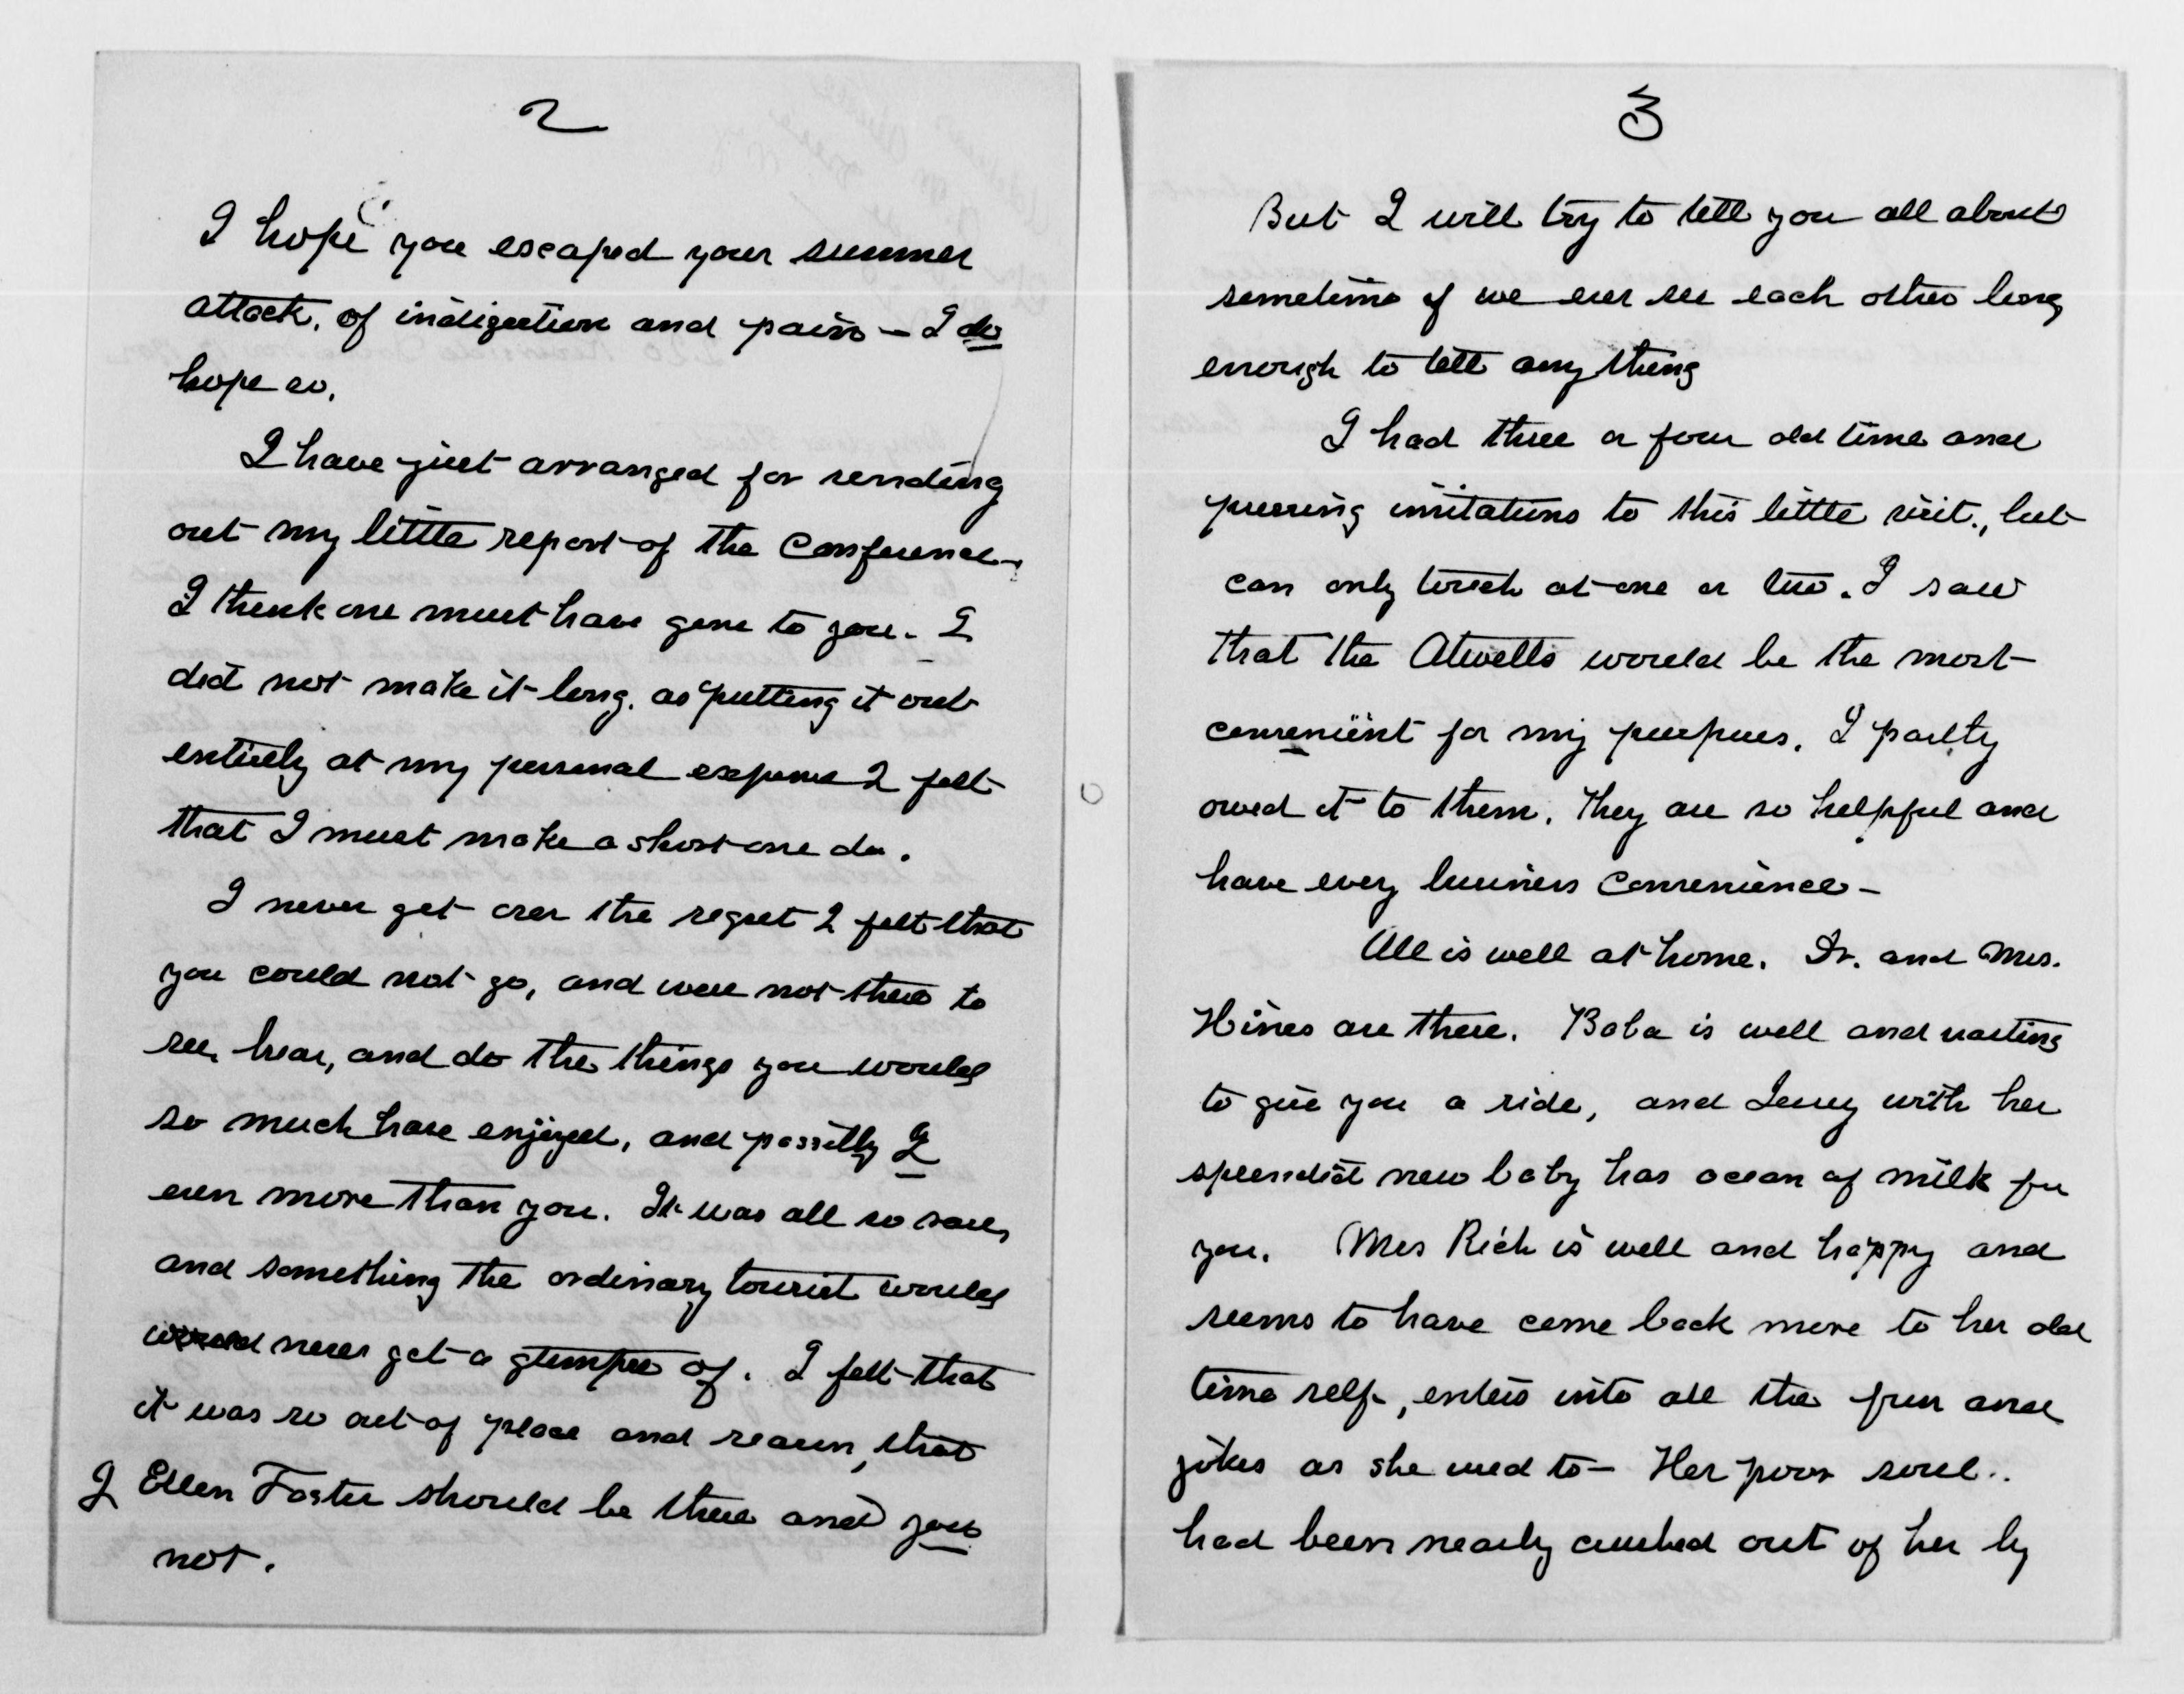 2
I hope you escaped your summer
attack, of indigestion and pain – I do
hope so.
I have just arranged for sending
out my little report of the Conference –
I think one must have gone to you – I
did not make it long, as putting it out
entirely at my personal expense I felt
that I must make a short one do.
I never get over the regret I felt that
you could not go, and were not there to
see, hear, and do the things you would
so much have enjoyed, and possibly I
even more than you. It was all so rare,
and something the ordinary tourist would
would never get a glimpse of. I felt that
it was so out of place and reason, that
J Ellen Foster should be there and you
not.
3
But I will try to tell you all about
sometime if we ever see each other long
enough to tell any thing
I had three or four old time and
pressing invitations to this little visit, but
can only touch at one or two. I saw
that the Atwells would be the most
convenient for my purposes. I partly
owed it to them. They are so helpful and
have every business convenience –
All is well at home. Dr. and Mrs.
Hines are there. Baba is well and waiting
to give you a ride, and with her
splendid new baby has ocean of milk for
you. Mrs Rich is well and happy and
seems to have come back more to her old
time self, enters into all the fun and
jokes as she used to – Her poor soul..
had been nearly crushed out of her by